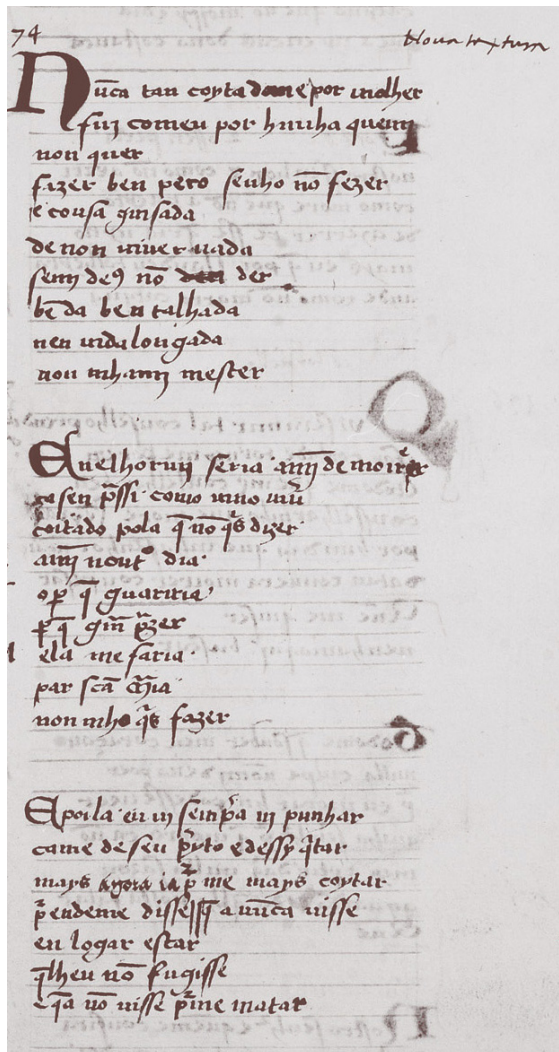 74 Nova textura
Nũca tan coyta dame por molher
fuj comeu por hunha quemj
non quer
fazer ben pero senho nõ fezer
e cousa guisada
de non viver nada
semj deꝯ nõ der
bẽ da ben talhada
nen vida longada
non mham mester
E melhormj seria amj de moirer
ca sen p̃ssi como mivo viv̄
coitado pola q̃ no q̃s dizer
amj nout̃ dia
o ꝑ q̃ guariria
ꝑ q̃ gm̃ p̃zer
ela me faria
par scã m̃ia
non mho q̃s fazer
E poila eu vi semp̃a vi punhar
came de seu p̃yto e dessy q̃tar
mays agora ia p̃ me mays coytar
p̃endeme dissessq̃ a nũca visse
en logar estar
q̃lheu nõ fugisse
e q̃a nõ visse p̃me matar